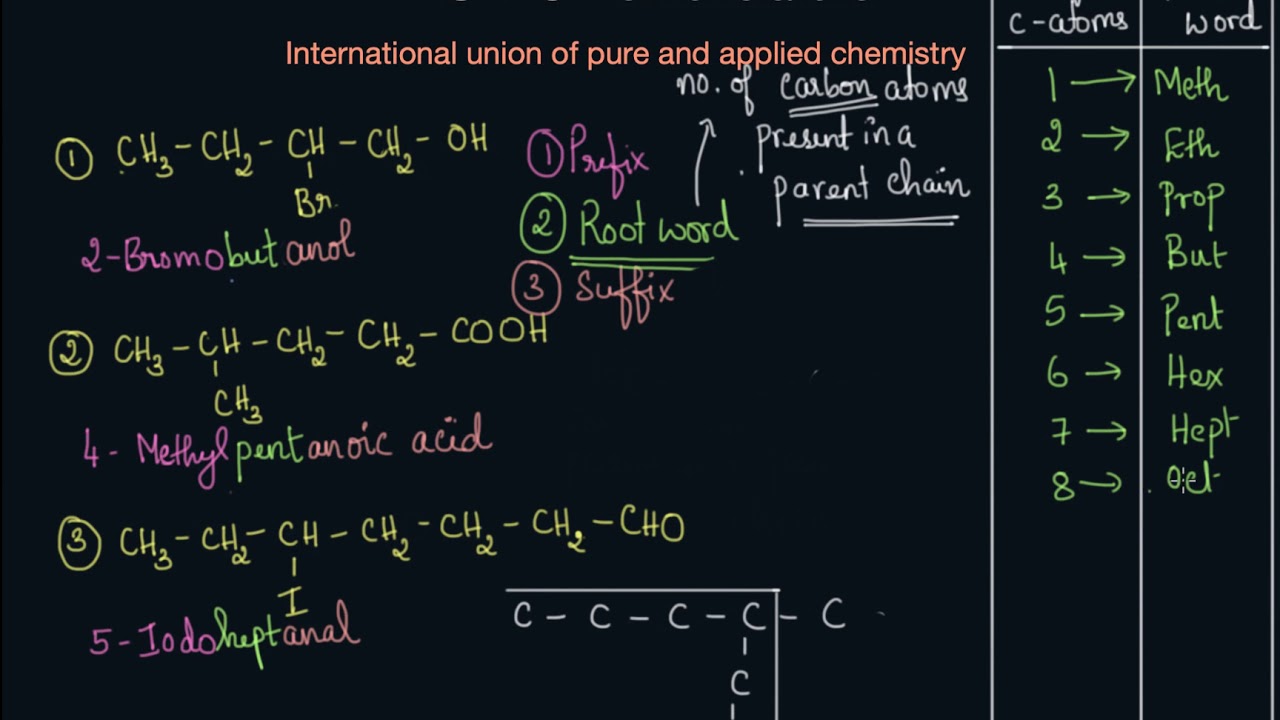 International union of pure and applied chemistry
① CH3 - CH2 - CH - CH2 - OH
Br
2-Bromobutanol
① Prefix
② Root word
③ Suffix
no. of carbon atoms
present in a
parent chain
② CH3 - CH - CH2 - CH2 - COOH
CH3
4 - Methyl pentanoic acid
③ CH3 - CH2 - CH - CH2 - CH2 - CH2 - CHO
I
5 - Iodoheptanal
C - C - C - C - C
C
C-atoms word
1 → Meth
2 → Eth
3 → Prop
4 → But
5 → Pent
6 → Hex
7 → Hept
8 → Oct